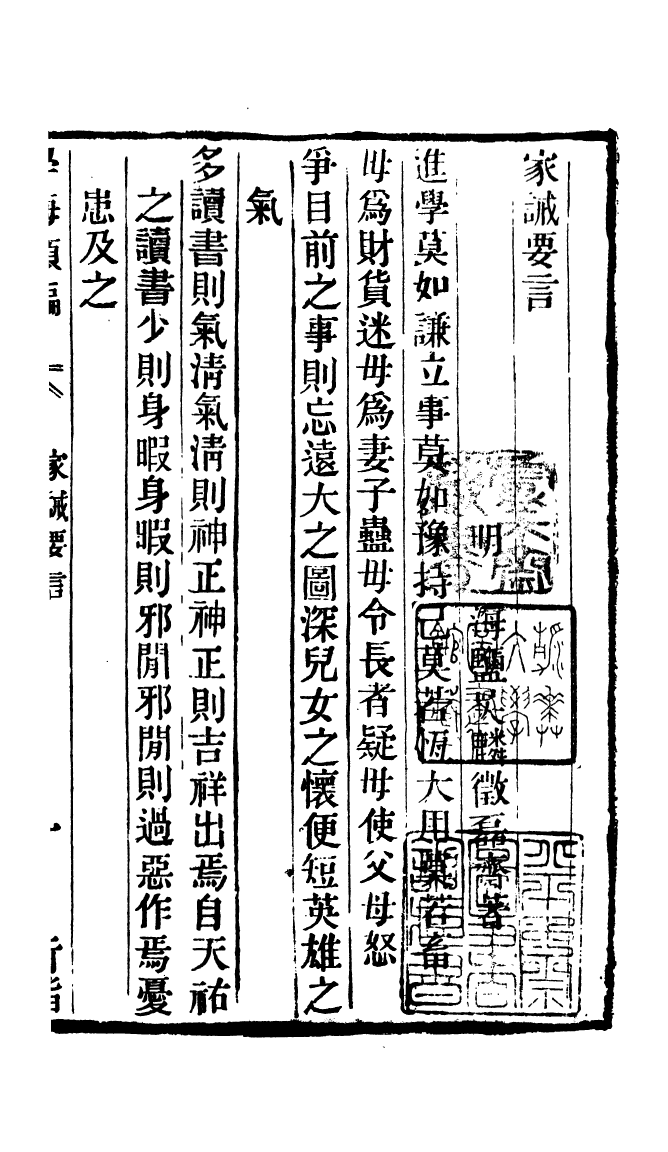 家誡要言
明 海鹽吳麟徵磊齋著
進學莫如謙立事莫如豫持己莫若恆大用莫若畜
毋爲財貨迷毋爲妻子蠱毋令長者疑毋使父母怒
爭目前之事則忘遠大之圖深兒女之懷便短英雄之
氣
多讀書則氣清氣清則神正神正則吉祥出焉自天祐
之讀書少則身暇身暇則邪閒邪閒則過惡作焉憂
患及之
學海類編 家誡要言 一 行詣